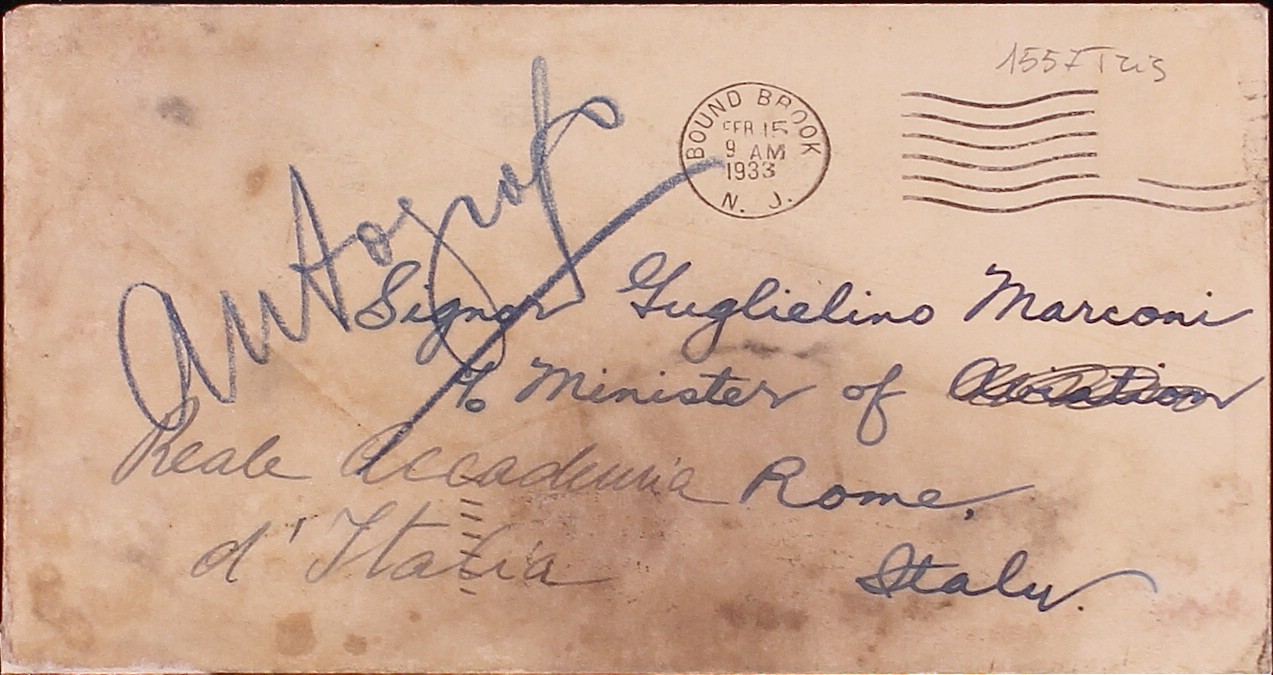 1557 Tris
BOUND BROOK
FEB 15
9 AM
1933
N. J.
Autografo
Signor Guglielino Marconi
c/o Minister of Aviation
Reale Accademia Rome,
d'Italia
Italy.